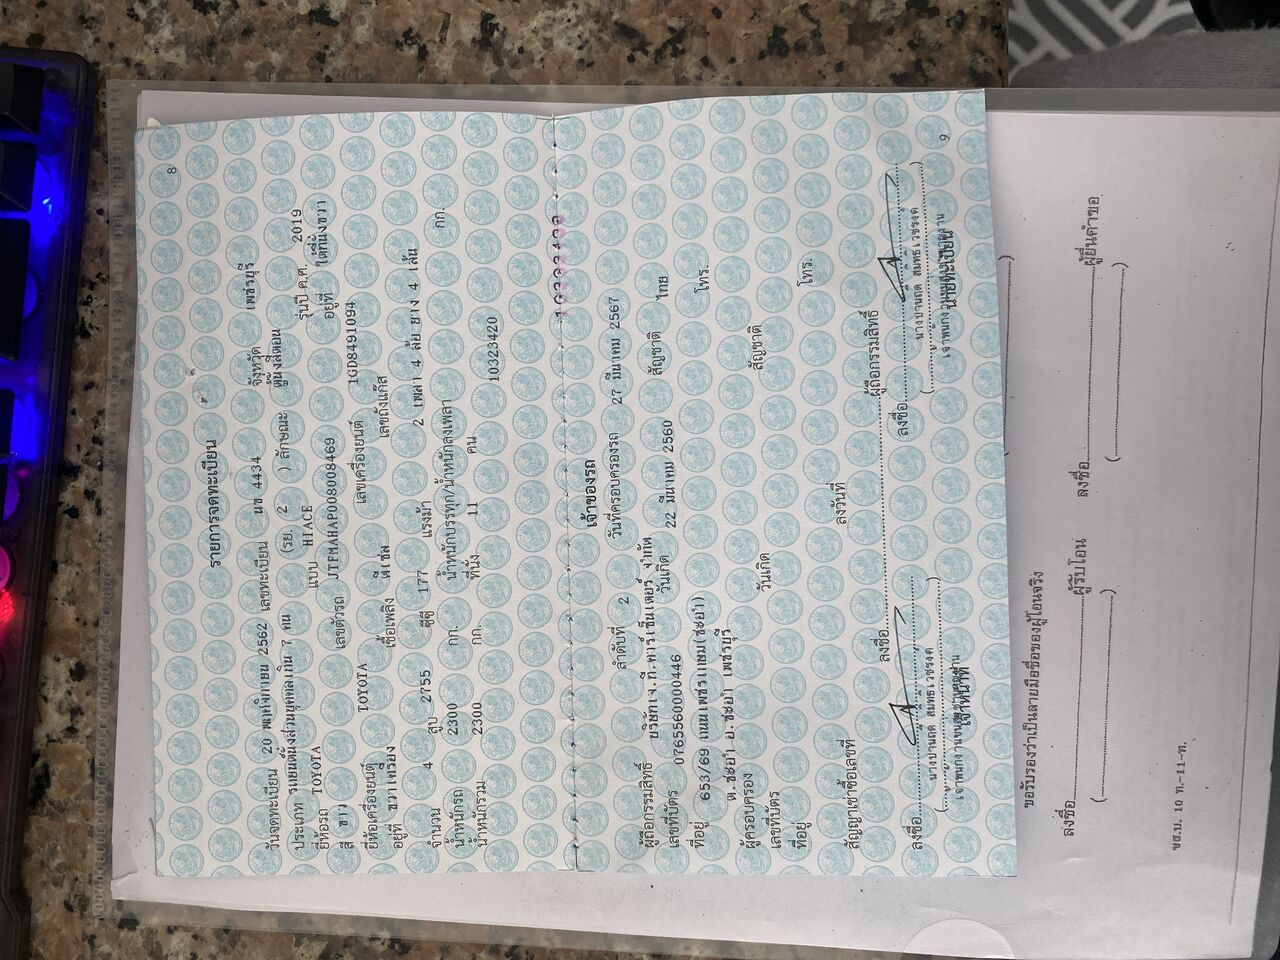 8
รายการจดทะเบียน
วันจดทะเบียน 20 พฤศจิกายน 2562 เลขทะเบียน นข 4434 จังหวัด เพชรบุรี
ประเภท รถยนต์นั่งส่วนบุคคลเกิน 7 คน (รย. 2 ) ลักษณะ ตู้นั่งสี่ตอน
ยี่ห้อรถ TOYOTA แบบ HIACE รุ่นปี ค.ศ. 2019
สี ขาว เลขตัวรถ JTFMAHAP008008469 อยู่ที่ ใต้ที่นั่งขวา
ยี่ห้อเครื่องยนต์ TOYOTA เลขเครื่องยนต์ 1GD8491094
อยู่ที่ ขวาเครื่อง เชื้อเพลิง ดีเซล เลขถังแก๊ส
จำนวน 4 สูบ 2755 ซีซี 177 แรงม้า 2 เพลา 4 ล้อ ยาง 4 เส้น
น้ำหนักรถ 2300 กก. น้ำหนักบรรทุก/น้ำหนักลงเพลา กก.
น้ำหนักรวม 2300 กก. ที่นั่ง 11 คน 10323420
เจ้าของรถ
ลำดับที่ 2 วันที่ครอบครองรถ 27 มีนาคม 2567
ผู้ถือกรรมสิทธิ์ บริษัทเจ.ที.ทาร์เซ็นเตอร์ จำกัด
เลขที่บัตร 0765560000446 วันเกิด 22 มีนาคม 2560 สัญชาติ ไทย
ที่อยู่ 653/69 ถนนเพชรเกษม(ชะอำ) โทร.
ต.ชะอำ อ.ชะอำ เพชรบุรี
ผู้ครอบครอง
เลขที่บัตร วันเกิด สัญชาติ
ที่อยู่ โทร.
สัญญาเช่าซื้อเลขที่ ลงวันที่
ลงชื่อ ผู้ถือกรรมสิทธิ์
ลงชื่อ ลงชื่อ
เจ้าหน้าที่ นายทะเบียน
9
ขอรับรองว่าเป็นลายมือชื่อของผู้โอนจริง
ลงชื่อ ผู้รับโอน ลงชื่อ ผู้ยื่นคำขอ
( ) ( )